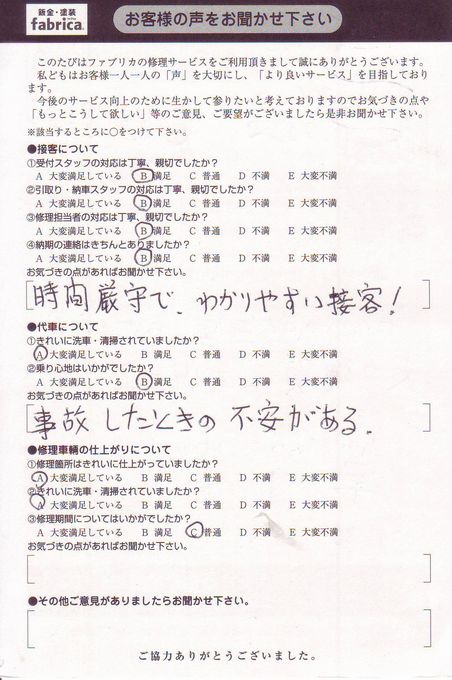 鈑金・塗装
fabrica.
お客様の声をお聞かせ下さい
このたびはファブリカの修理サービスをご利用頂きまして誠にありがとうございます。
私どもはお客様一人一人の「声」を大切にし、「より良いサービス」を目指しており
ます。
今後のサービス向上のために生かして参りたいと考えておりますのでお気づきの点や
「もっとこうして欲しい」等のご意見、ご要望がございましたら是非お聞かせ下さい。
※該当するところに○をつけて下さい。
●接客について
①受付スタッフの対応は丁寧、親切でしたか？
A 大変満足している B 満足 C 普通 D 不満 E 大変不満
②引取り・納車スタッフの対応は丁寧、親切でしたか？
A 大変満足している B 満足 C 普通 D 不満 E 大変不満
③修理担当者の対応は丁寧、親切でしたか？
A 大変満足している B 満足 C 普通 D 不満 E 大変不満
④納期の連絡はきちんとありましたか？
A 大変満足している B 満足 C 普通 D 不満 E 大変不満
お気づきの点があればお聞かせ下さい。
時間厳守で、わかりやすい接客！
●代車について
①きれいに洗車・清掃されていましたか？
A 大変満足している B 満足 C 普通 D 不満 E 大変不満
②乗り心地はいかがでしたか？
A 大変満足している B 満足 C 普通 D 不満 E 大変不満
お気づきの点があればお聞かせ下さい。
事故したときの不安がある。
●修理車輌の仕上がりについて
①修理箇所はきれいに仕上がっていましたか？
A 大変満足している B 満足 C 普通 D 不満 E 大変不満
②きれいに洗車・清掃されていましたか？
A 大変満足している B 満足 C 普通 D 不満 E 大変不満
③修理期間についてはいかがでしたか？
A 大変満足している B 満足 C 普通 D 不満 E 大変不満
お気づきの点があればお聞かせ下さい。
●その他ご意見がありましたらお聞かせ下さい。
ご協力ありがとうございました。